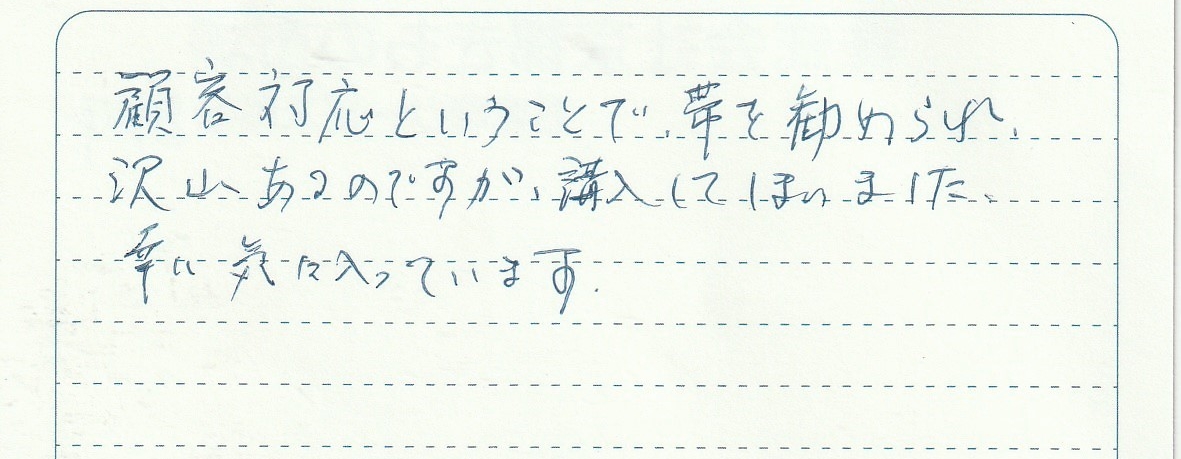 顧客対応ということで、帯を勧められ、
沢山あるのですが、講入してしまいました、
幸い気に入っています.